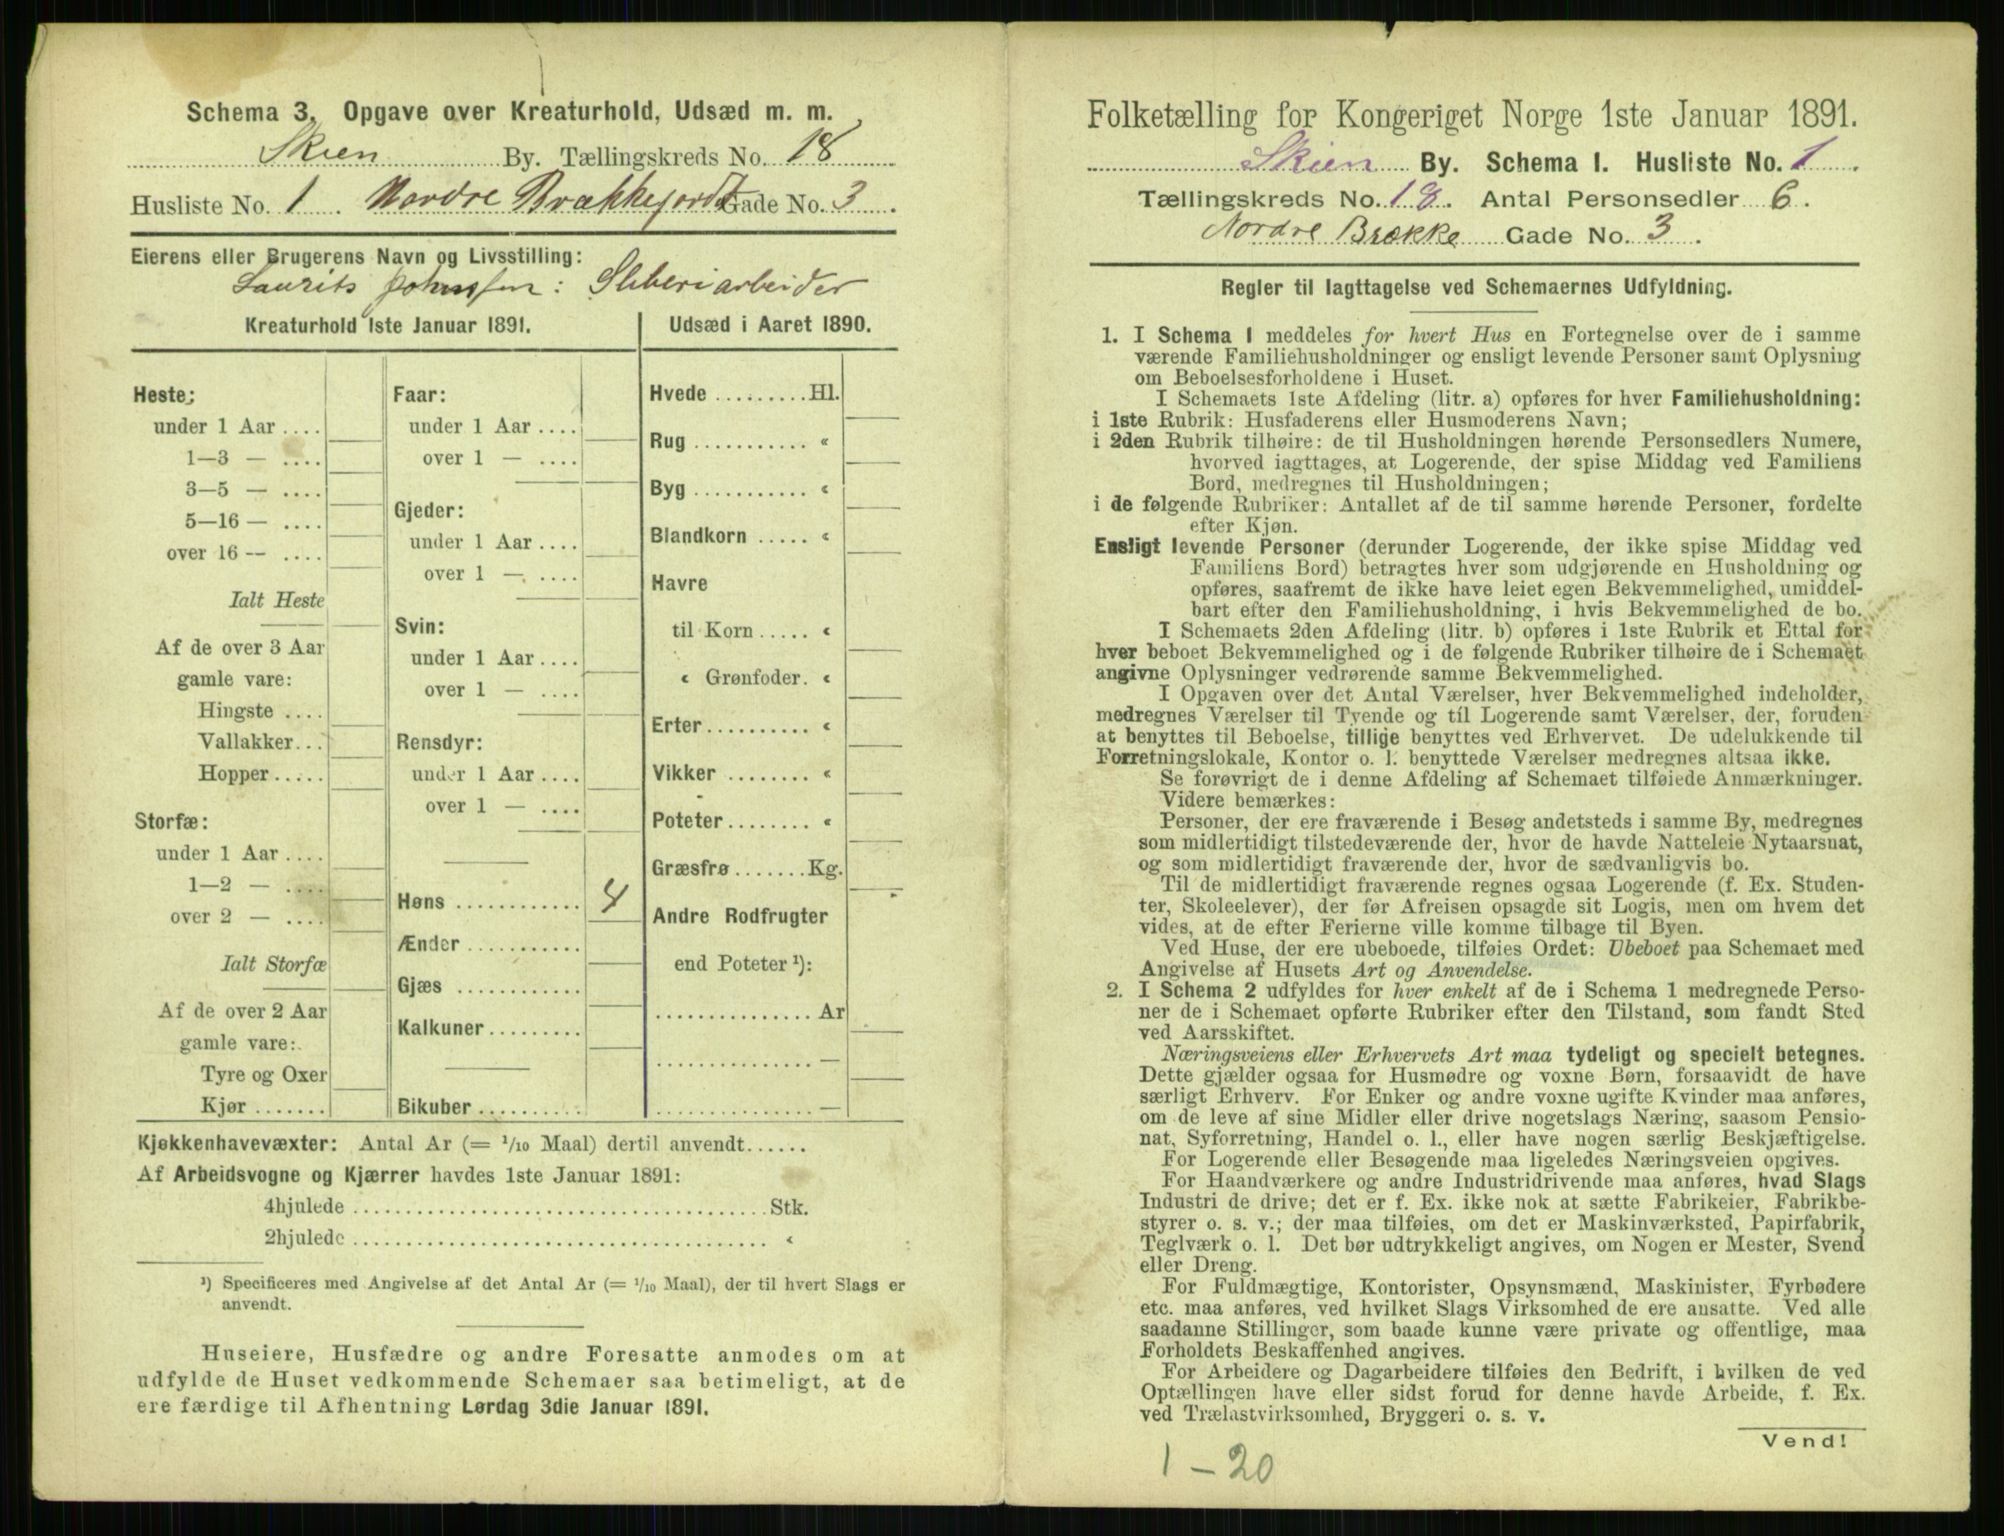 Schema 3. Opgave over Kreaturhold, Udsæd m. m.
Skien By. Tællingskreds No. 18
Husliste No. 1. Nordre Brækkejordet Gade No. 3.
Eierens eller Brugerens Navn og Livsstilling:
Laurits Johnssen: Sliberiarbeider
Kreaturhold 1ste Januar 1891.
Heste:
under 1 Aar ....
1—3 — ....
3—5 — ....
5—16 — ....
over 16 — ....
Ialt Heste
Af de over 3 Aar
gamle vare:
Hingste ....
Vallakker...
Hopper.....
Storfæ:
under 1 Aar ....
1—2 — ....
over 2 — ....
Ialt Storfæ
Af de over 2 Aar
gamle vare:
Tyre og Oxer
Kjør .......
Faar:
under 1 Aar ....
over 1 — ....
Gjeder:
under 1 Aar ....
over 1 — ....
Svin:
under 1 Aar ....
over 1 — ....
Rensdyr:
under 1 Aar ....
over 1 — ....
Høns ............ 4
Ænder ...........
Gjæs ............
Kalkuner.........
Bikuber ..........
Udsæd i Aaret 1890.
Hvede .........Hl.
Rug ........... «
Byg ........... «
Blandkorn ..... «
Havre
til Korn ..... «
« Grønfoder. «
Erter.......... «
Vikker ........ «
Poteter........ «
Græsfrø .......Kg.
Andre Rodfrugter
end Poteter ¹):
............... Ar
............... —
............... —
Kjøkkenhavevæxter: Antal Ar (= 1/10 Maal) dertil anvendt......
Af Arbeidsvogne og Kjærrer havdes 1ste Januar 1891:
4hjulede ..................................... Stk.
2hjulede ..................................... «
¹) Specificeres med Angivelse af det Antal Ar (= 1/10 Maal), der til hvert Slags er
anvendt.
Huseiere, Husfædre og andre Foresatte anmodes om at
udfylde de Huset vedkommende Schemaer saa betimeligt, at de
ere færdige til Afhentning Lørdag 3die Januar 1891.
Folketælling for Kongeriget Norge 1ste Januar 1891.
Skien By. Schema 1. Husliste No. 1.
Tællingskreds No. 18. Antal Personsedler 6.
Nordre Brække Gade No. 3.
Regler til Iagttagelse ved Schemaernes Udfyldning.
1. I Schema 1 meddeles for hvert Hus en Fortegnelse over de i samme
værende Familiehusholdninger og ensligt levende Personer samt Oplysning
om Beboelsesforholdene i Huset.
I Schemaets 1ste Afdeling (litr. a) opføres for hver Familiehusholdning:
i 1ste Rubrik: Husfaderens eller Husmoderens Navn;
i 2den Rubrik tilhøire: de til Husholdningen hørende Personsedlers Numere,
hvorved iagttages, at Logerende, der spise Middag ved Familiens
Bord, medregnes til Husholdningen;
i de følgende Rubriker: Antallet af de til samme hørende Personer, fordelte
efter Kjøn.
Ensligt levende Personer (derunder Logerende, der ikke spise Middag ved
Familiens Bord) betragtes hver som udgjørende en Husholdning og
opføres, saafremt de ikke have leiet egen Bekvemmelighed, umiddel-
bart efter den Familiehusholdning, i hvis Bekvemmelighed de bo.
I Schemaets 2den Afdeling (litr. b) opføres i 1ste Rubrik et Ettal for
hver beboet Bekvemmelighed og i de følgende Rubriker tilhøire de i Schemaet
angivne Oplysninger vedrørende samme Bekvemmelighed.
I Opgaven over det Antal Værelser, hver Bekvemmelighed indeholder,
medregnes Værelser til Tyende og til Logerende samt Værelser, der, foruden
at benyttes til Beboelse, tillige benyttes ved Erhvervet. De udelukkende til
Forretningslokale, Kontor o. l. benyttede Værelser medregnes altsaa ikke.
Se forøvrigt de i denne Afdeling af Schemaet tilføiede Anmærkninger.
Videre bemærkes:
Personer, der ere fraværende i Besøg andetsteds i samme By, medregnes
som midlertidigt tilstedeværende der, hvor de havde Natteleie Nytaarsnat,
og som midlertidigt fraværende der, hvor de sædvanligvis bo.
Til de midlertidigt fraværende regnes ogsaa Logerende (f. Ex. Studen-
ter, Skoleelever), der før Afreisen opsagde sit Logis, men om hvem det
vides, at de efter Ferierne ville komme tilbage til Byen.
Ved Huse, der ere ubeboede, tilføies Ordet: Ubeboet paa Schemaet med
Angivelse af Husets Art og Anvendelse.
2. I Schema 2 udfyldes for hver enkelt af de i Schema 1 medregnede Perso-
ner de i Schemaet opførte Rubriker efter den Tilstand, som fandt Sted
ved Aarsskiftet.
Næringsveiens eller Erhvervets Art maa tydeligt og specielt betegnes.
Dette gjælder ogsaa for Husmødre og voxne Børn, forsaavidt de have
særligt Erhverv. For Enker og andre voxne ugifte Kvinder maa anføres,
om de leve af sine Midler eller drive nogetslags Næring, saasom Pensio-
nat, Syforretning, Handel o. l., eller have nogen særlig Beskjæftigelse.
For Logerende eller Besøgende maa ligeledes Næringsveien opgives.
For Haandværkere og andre Industridrivende maa anføres, hvad Slags
Industri de drive; det er f. Ex. ikke nok at sætte Fabrikeier, Fabrikbe-
styrer o. s. v.; der maa tilføies, om det er Maskinværksted, Papirfabrik,
Teglværk o. l. Det bør udtrykkeligt angives, om Nogen er Mester, Svend
eller Dreng.
For Fuldmægtige, Kontorister, Opsynsmænd, Maskinister, Fyrbødere
etc. maa anføres, ved hvilket Slags Virksomhed de ere ansatte. Ved alle
saadanne Stillinger, som baade kunne være private og offentlige, maa
Forholdets Beskaffenhed angives.
For Arbeidere og Dagarbeidere tilføies den Bedrift, i hvilken de ved
Optællingen have eller sidst forud for denne havde Arbeide, f. Ex.
ved Trælastvirksomhed, Bryggeri o. s. v.
Vend!
1 - 20